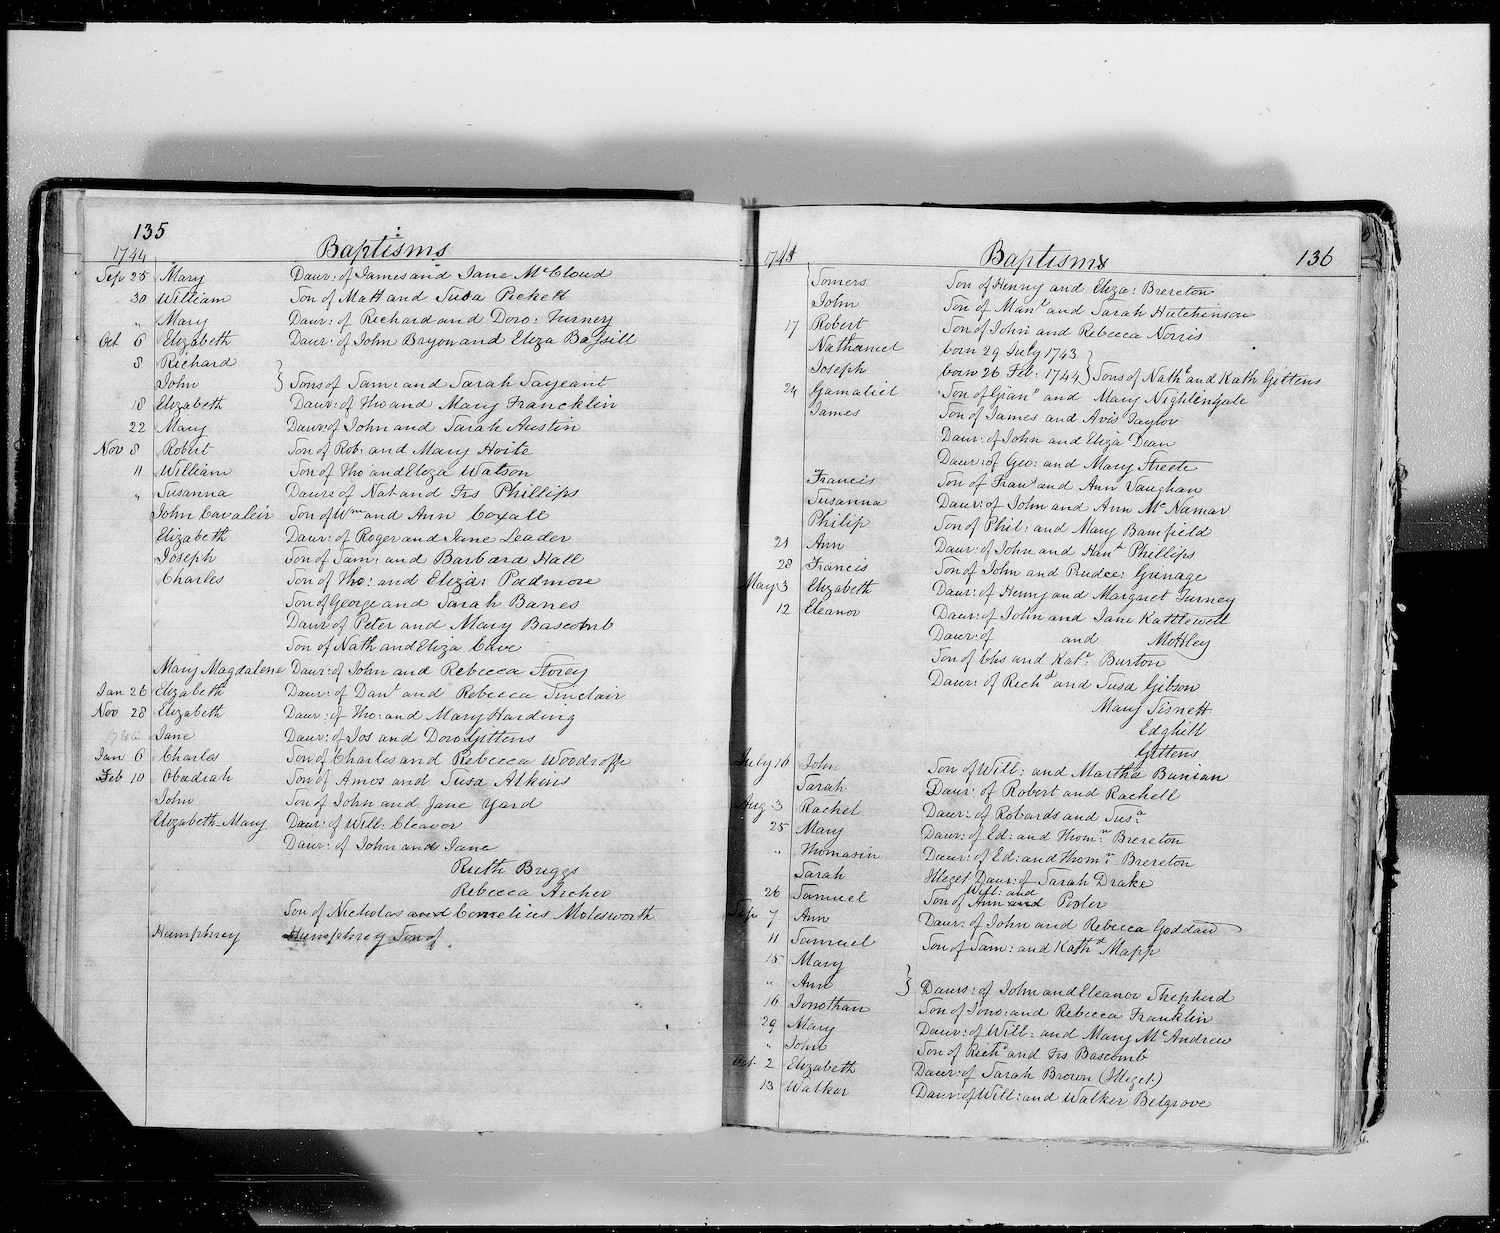 135
Baptisms
1744
Sep 25 Mary Daur: of James and Jane McCloud
30 William Son of Matt and Susa Pickett
" Mary Daur: of Richard and Doro: Turney
Oct 6 Elizabeth Daur: of John Bryon and Eliza Bassill
8 Richard
John } Sons of Sam: and Sarah Sargeant
18 Elizabeth Daur: of Tho and Mary Francklin
22 Mary Daur: of John and Sarah Austin
Nov 8 Robert Son of Rob: and Mary Hoite
11 William Son of Tho and Eliza Watson
" Susanna Daur: of Nat and Frs Phillips
John Cavaleir Son of Wm and Ann Coxall
Elizabeth Daur: of Roger and Jane Leader
Joseph Son of Sam: and Barbara Hall
Charles Son of Tho: and Eliza: Padmore
Son of George and Sarah Banes
Daur of Peter and Mary Bascomb
Son of Nath and Eliza Cave
Mary Magdalene Daur: of John and Rebecca Storey
Jan 26 Elizabeth Daur: of Danl and Rebecca Sinclair
Nov 28 Elizabeth Daur: of Tho: and Mary Harding
Jane Daur: of Jos and Doro Gittens
Jan 6 Charles Son of Charles and Rebecca Woodroffe
Feb 10 Obadiah Son of Amos and Susa Atkins
John Son of John and Jane Yard
Elizabeth-Mary Daur: of Will: Cleavor
Daur: of John and Jane
Ruth Briggs
Rebecca Archer
Son of Nicholas and Cornelius Molesworth
Humphrey Humphrey Son of
1744
Baptisms
136
Somers Son of Henry and Eliza: Brereton
John Son of Manl and Sarah Hutchinson
17 Robert Son of John and Rebecca Norris
Nathaniel born 29 July 1743
Joseph born 26 Feb: 1744 } Sons of Nathl and Kath Gittens
24 Gamaliel Son of Gran and Mary Nightengale
James Son of James and Avis Taylor
Daur: of John and Eliza Dean
Daur: of Geo: and Mary Streete
Francis Son of Fran and Ann Vaughan
Susanna Daur: of John and Ann McNamar
Philip Son of Phil: and Mary Bamfield
21 Ann Daur: of John and Hana Phillips
28 Francis Son of John and Prudce: Grenage
May 3 Elizabeth Daur: of Henry and Margaret Turney
12 Eleanor Daur: of John and Jane Kathlewell
Daur: of and Mottley
Son of Chs and Kat: Burton
Daur: of Richd and Susa Gibson
Mary Sisnett
Edghill
Gittens
July 16 John Son of Will: and Martha Bunian
Sarah Daur: of Robert and Rachell
Aug 3 Rachel Daur: of Robards and Susa
25 Mary Daur: of Ed: and Thomn: Brereton
" Thomasin Daur: of Ed: and Thomn: Brereton
Sarah Illeget Daur: of Sarah Drake
26 Samuel Son of Will: and Ann and Poxler
Sep 7 Ann Daur: of John and Rebecca Goddard
11 Samuel Son of Sam: and Kath Mapp
15 Mary
" Ann } Daurs: of John and Eleanor Shepherd
16 Jonathan Son of Jono: and Rebecca Franklin
29 Mary Daur: of Will: and Mary McAndrew
" John Son of Richd and Frs Bascomb
Oct. 2 Elizabeth Daur: of Sarah Brown (Illeget:)
13 Walker Daur: of Will: and Walker Belgrove